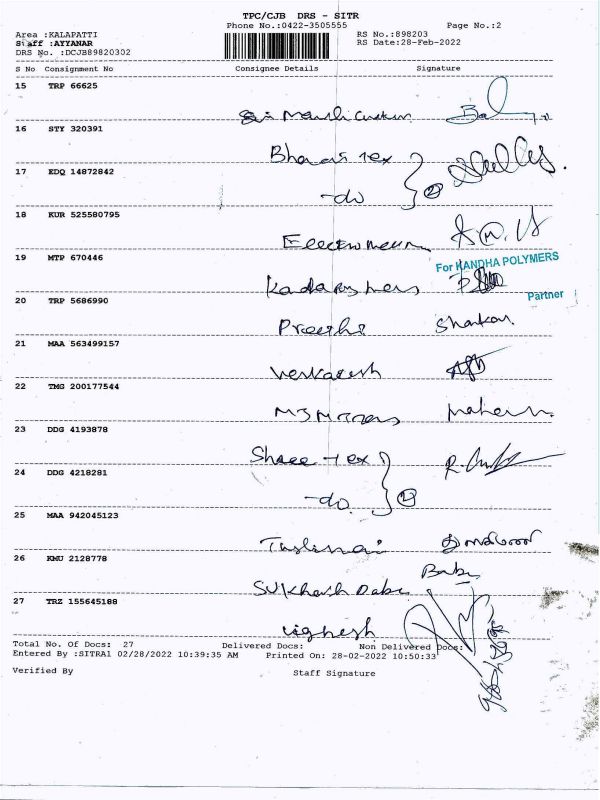 TPC/CJB DRS - SITR
Phone No.:0422-3505555 Page No.:2
Area :KALAPATTI RS No.:898203
Staff :AYYANAR RS Date:28-Feb-2022
DRS No. :DCJB89820302
S No Consignment No Consignee Details Signature
15 TRP 66625
Sri
16 STY 320391
Bharat Tex
17 EDQ 14872842
-do 2
18 KUR 525580795
19 MTP 670446
For KANDHA POLYMERS
20 TRP 5686990
Partner
Preethi Shankar
21 MAA 563499157
Venkatesh
22 TMG 200177544
23 DDG 4193878
Shree Tex
24 DDG 4218281
-do 2
25 MAA 942045123
26 KMU 2128778
Sukhash Babu Babu
27 TRZ 155645188
Vighesh
Total No. Of Docs: 27 Delivered Docs: Non Delivered Docs:
Entered By :SITRA1 02/28/2022 10:39:35 AM Printed On: 28-02-2022 10:50:33
Verified By Staff Signature